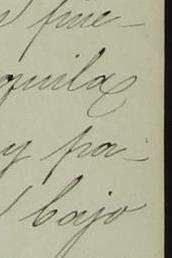 s fine-
quila
y pa-
bajo